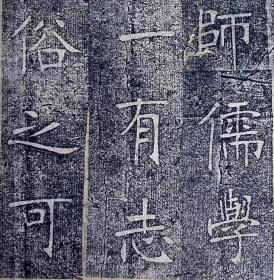 師儒學
一有志
俗之可